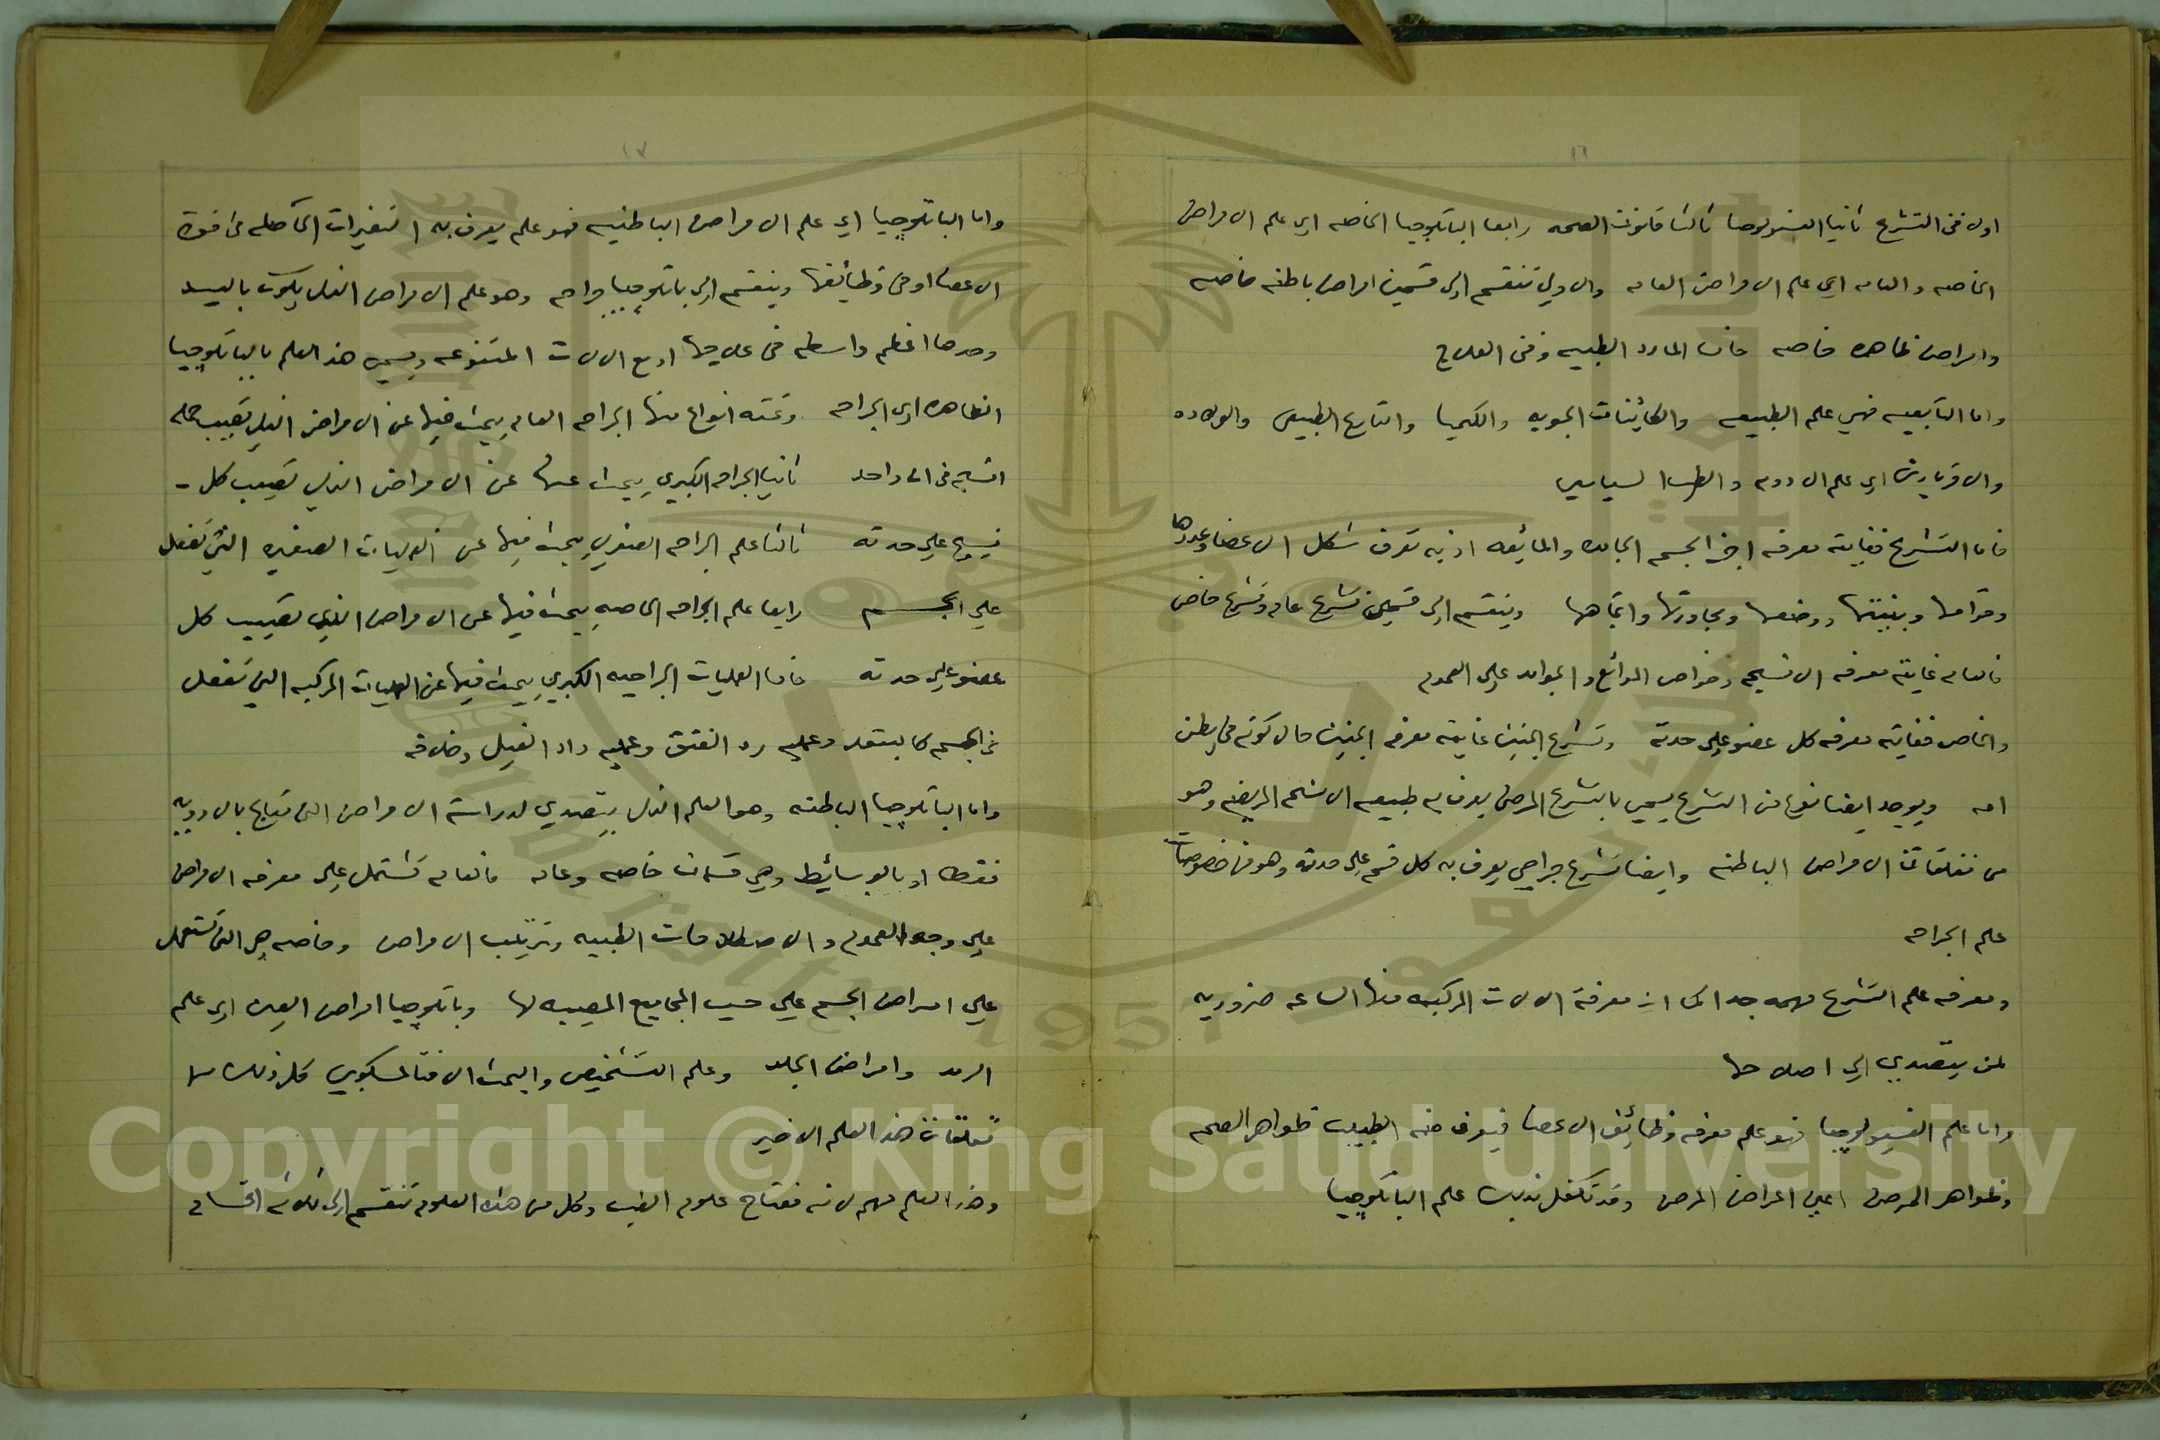 ١٦
اولا فن التشريح ثانيا الفسيولوجيا ثالثا قانون الصحه رابعا الباتلوجيا الخاصه اي علم الامراض
الخاصه والعامه اي علم الامراض العامه والاولي تنقسم الي قسمين امراض باطنه خاصه
وامراض ظاهره خاصه خامسا المادة الطبيه وفن العلاج
واما التابعيه فهي علم الطبيعه والكائينات الجويه والكيميا والتاريخ الطبيعي والولاده
والاقربازين اي علم الادويه والطب السياسي
فاما التشريح فغايته معرفه اجزا الجسم الجامده والمائيعه اذ به تعرف شكل الاعضا وعددها
وقوامها وبنيتها ووضعها ومجاورتها واتجاهها وينقسم الي قسمين تشريح عام وتشريح خاص
فالعام غايته معرفه الانسيجه وخواص الموائع والجوامد علي العموم
والخاص فغايته معرفه كل عضو علي حدته وتشريح الجنين غايته معرفه الجنين حال كونه في بطن
امه ويوجد ايضا نوع من التشريح يسمي بالتشريح المرضي يعرف به طبيعه الانسجه المريضه وهو
من تعلقات الامراض الباطنه وايضا تشريح جراحي يعرف به كل قسم علي حدته وهو من خصوصيات
علم الجراحه
ومعرفه علم التشريح مهمه جدا كما ان معرفة الالات المركبه منها الساعه ضروريه
لمن يتصدي الي اصلاحها
واما علم الفسيولوجيا فهو علم معرفه وظائيف الاعضا فيعرف منه الطبيب ظواهر الصحه
وظواهر المرض اعني اعراض المرض وقد تكفل بذلك علم الباتلوجيا
١٧
واما الباتلوجيا اي علم الامراض الباطنيه فهو علم يعرف به التغيرات الحاصله في قوة
الاعضا او في وظائفها وينقسم الي باتلوجيا جراحه وهو علم الامراض الذي يكون باليد
وحدها اعظم واسطه في علاجها او مع الالات المتنوعه ويسمي هذا العلم بالباتلوجيا
الظاهره اي الجراحه وتحته انواع منها الجراحه العامه يبحث فيها عن الامراض الذي تصيب جمله
انسجه في ان واحد ثانيا الجراحه الكبري يبحث عنها عن الامراض الذي تصيب كل -
نسيج علي حدته ثالثا علم الجراحه الصغري يبحث فيها عن العمليات الصغيره التي تفعل
علي الجسم رابعا علم الجراحه الخاصه يبحث فيها عن الامراض الذي تصيب كل
عضو علي حدته خامسا العمليات الجراحيه الكبري يبحث فيها عن العمليات المركبه التي تفعل
في الجسم كالبتر وعمليه رد الفتق وعمليه داء الفيل وخلافه
واما الباتلوجيا الباطنه وهو العلم الذي يتصدي لدراسة الامراض التي تعالج بالادويه
فقط او بالوسائيط وهي قسمان خاصه وعامه فالعامه تشتمل علي معرفه الامراض
علي وجه العموم والاصطلاحات الطبيه وترتيب الامراض وخاصه هي التي تشتمل
علي امراض الجسم علي حسب المجاميع المصيبه لها وباتلوجيا امراض العين اي علم
الرمد وامراض الجلد وعلم التشخيص والبحث الافتالمسكوبي كل ذلك من
تعلقات هذا العلم الاخير
وهذا العلم مهم لانه مفتاح علوم الطب وكل من هذه العلوم تنقسم الي ثلاثه اقسام
Copyright © King Saud University
1957